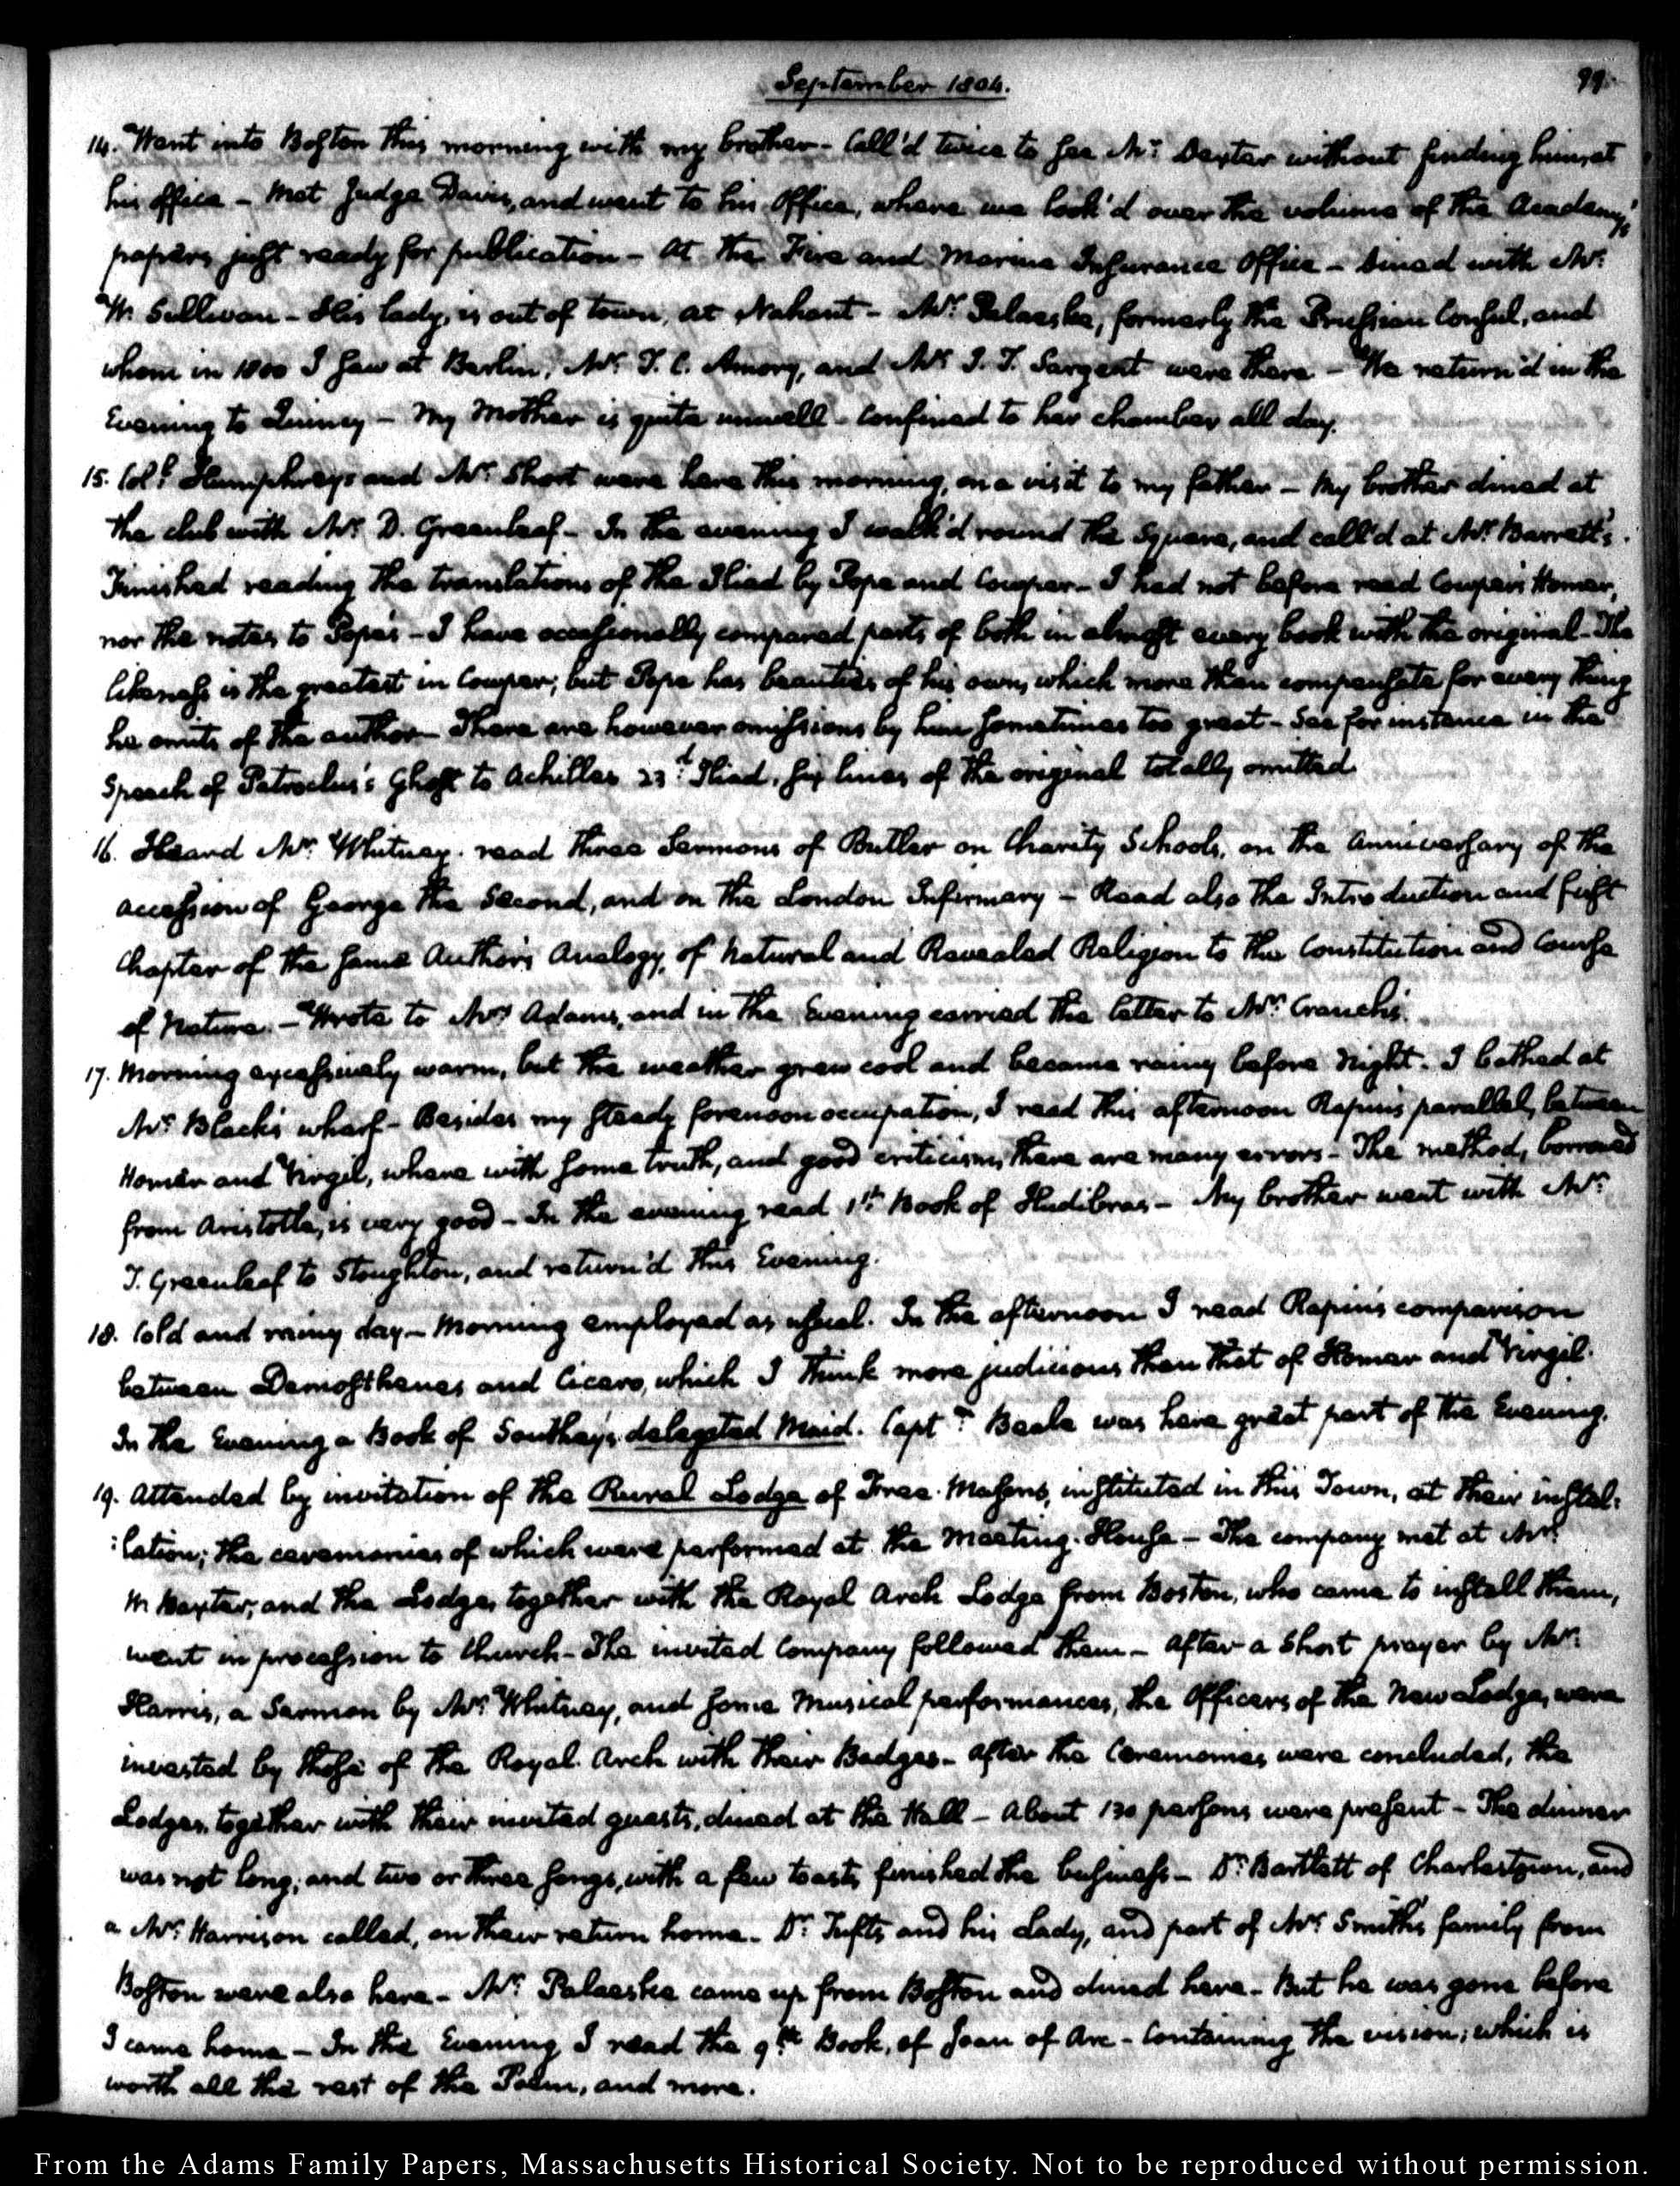 September 1804.
99.
14. Went into Boston this morning with my brother - Call'd twice to see Mr. Dexter without finding him at
his office - Met Judge Davis, and went to his Office, where we look'd over the volume of the Academy's
papers, just ready for publication - At the Fire and Marine Insurance Office - Dined with Mr.
W. Sullivan - His lady, is out of town, at Nahant - Mr. Palaeske, formerly the Prussian Consul, and
whom in 1800 I saw at Berlin, Mr. T. C. Amory, and Mr. D. Sargent were there - We return'd in the
Evening to Quincy - My Mother is quite unwell - Confined to her chamber all day.
15. Coll. Humphreys and Mr. Short were here this morning, on a visit to my father - My brother dined at
the club with Mr. D. Greenleaf - In the evening I walk'd round the Square, and call'd at Mr. Barrett's.
Finished reading the translations of the Iliad by Pope and Cowper - I had not before read Cowper's Homer,
nor the notes to Pope's - I have occasionally compared parts of both in almost every book with the original - The
likeness is the greatest in Cowper; but Pope has beauties of his own, which more than compensate for every thing
he omits of the author - There are however omissions by him sometimes too great - See for instance in the
Speech of Patroclus's Ghost to Achilles 23.d Iliad, six lines of the original totally omitted.
16. Heard Mr. Whitney read three Sermons of Butler on Charity Schools, on the Anniversary of the
accession of George the Second, and on the London Infirmary - Read also the Introduction and first
Chapter of the same Author's Analogy, of Natural and Revealed Religion to the Constitution and Course
of Nature. - Wrote to Mrs. Adams, and in the Evening carried the letter to Mr. Cranch's.
17. Morning excessively warm, but the weather grew cool and became rainy before Night. I bathed at
Mr. Black's wharf - Besides my steady forenoon occupation, I read this afternoon Rapin's parallel, between
Homer and Virgil, where with some truth, and good criticism, there are many errors - The method, borrowed
from Aristotle, is very good - In the evening read 1st. Book of Hudibras - My brother went with Mr.
T. Greenleaf to Stoughton, and return'd this Evening.
18. Cold and rainy day - Morning employed as usual. In the afternoon I read Rapin's comparison
between Demosthenes and Cicero, which I think more judicious than that of Homer and Virgil.
In the Evening a Book of Southey's delegated Maid. Capt.n Beale was here great part of the Evening.
19. Attended by invitation of the Rural Lodge of Free-Masons, instituted in this Town, at their instal:
:lation; the ceremonies of which were performed at the Meeting-House - The company met at Mr.
W. Baxter's, and the Lodge, together with the Royal Arch Lodge from Boston, who came to install them,
went in procession to Church - The invited Company followed them - After a short prayer by Mr.
Harris, a Sermon by Mr. Whitney, and some Musical performances, the Officers of the New Lodge, were
invested by those of the Royal Arch with their Badges - After the Ceremonies were concluded, the
Lodges, together with their invited guests, dined at the Hall - About 130 persons were present - The dinner
was not long; and two or three songs, with a few toasts, finished the business - Dr. Bartlett of Charlestown, and
a Mr. Harrison called, on their return home. Dr. Tufts and his Lady, and part of Mr. Smith's family from
Boston were also here - Mr. Palaeske came up from Boston and dined here - But he was gone before
I came home - In the Evening I read the 9th. Book, of Joan of Arc - Containing the vision; which is
worth all the rest of the Poem, and more.
From the Adams Family Papers, Massachusetts Historical Society. Not to be reproduced without permission.